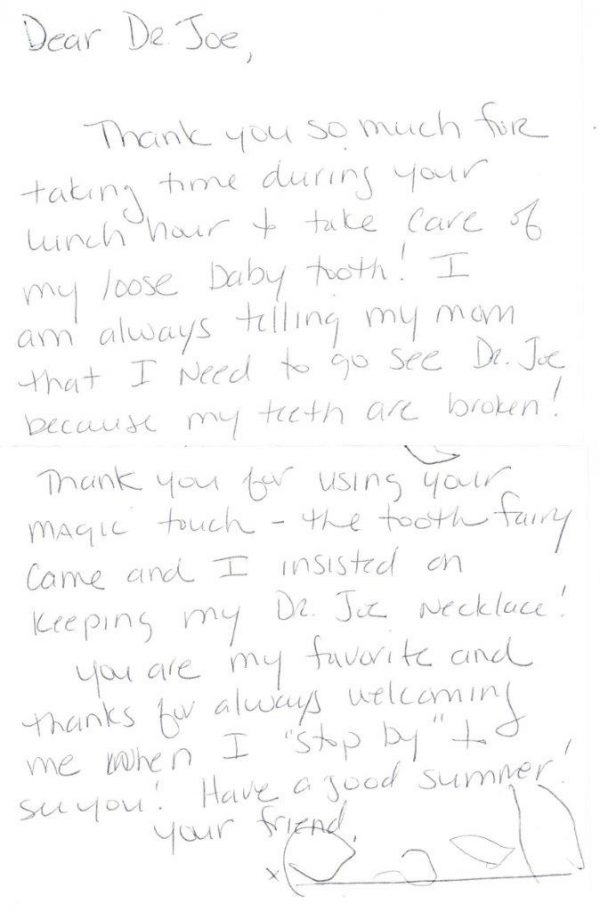 Dear Dr. Joe,
Thank you so much for
taking time during your
lunch hour to take care of
my loose baby tooth! I
am always telling my mom
that I need to go see Dr. Joe
because my teeth are broken!
Thank you for using your
magic touch - the tooth fairy
came and I insisted on
keeping my Dr. Joe Necklace!
you are my favorite and
thanks for always welcoming
me when I "stop by" to
see you! Have a good summer!
your friend,
x